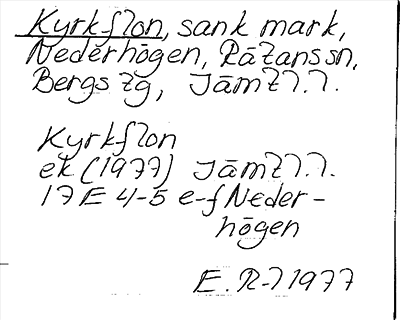 Kyrkflon, sank mark,
Nederhögen, Rätans sn,
Bergs tg, Jämtl.
Kyrkflon
ek (1977) Jämtl.
17E 4-5 e-f Neder-
högen
E. R-l 1977